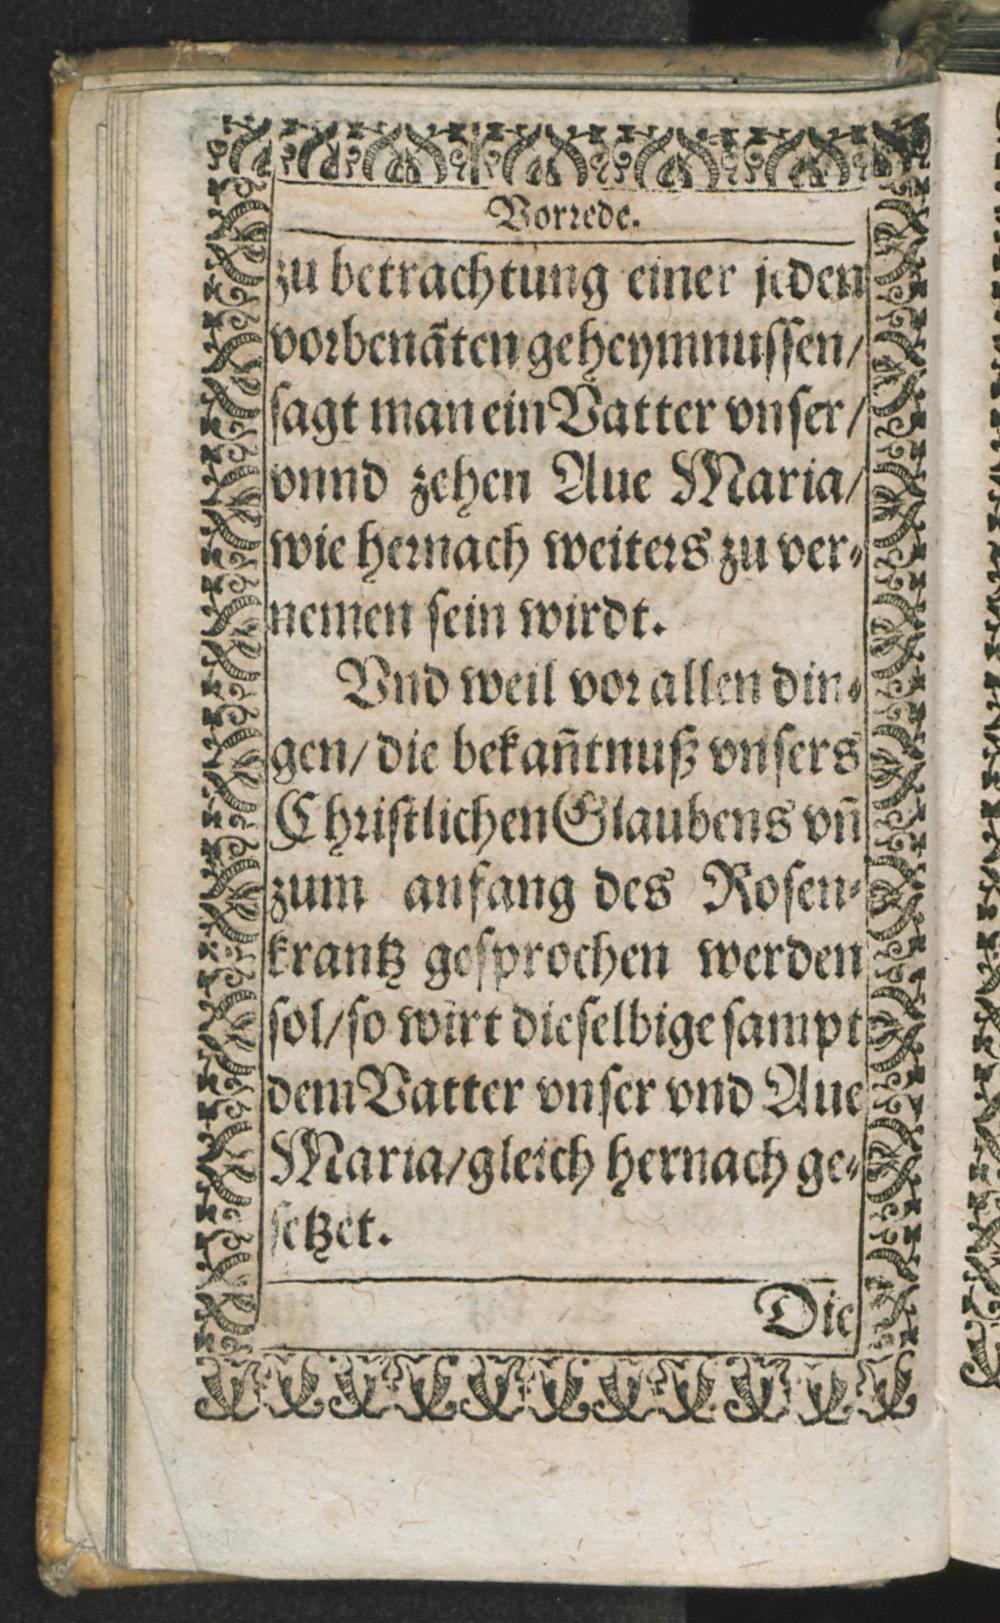 Vorrede.
zu betrachtung einer jeden
vorbenãten geheymnussen/
sagt man ein Vatter vnser/
vnnd zehen Aue Maria/
wie hernach weiters zu ver⸗
nemen sein wirdt.
Vnd weil vor allen din⸗
gen/ die bekañtnuß vnsers
Christlichen Glaubens vñ
zum anfang des Rosen⸗
krantz gesprochen werden
sol/ so wirt dieselbige sampt
dem Vatter vnser vnd Aue
Maria/ gleich hernach ge⸗
setzet.
Die